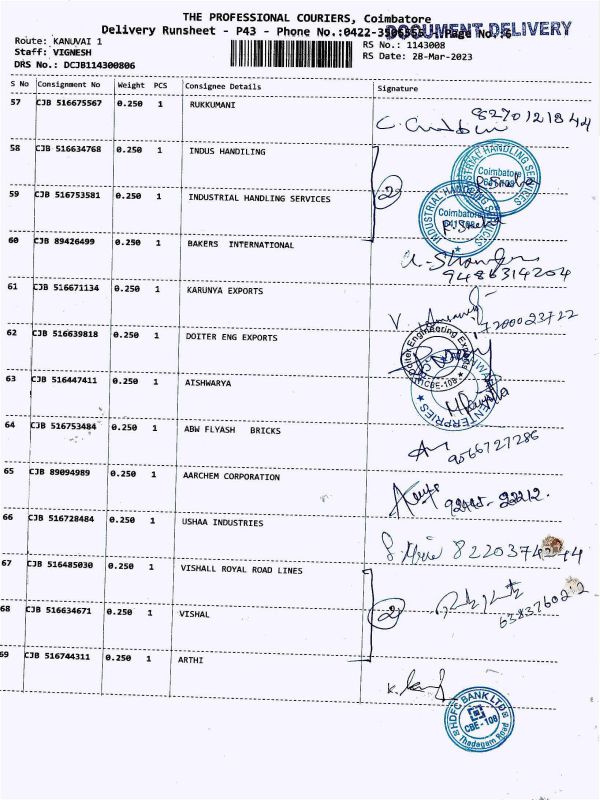 THE PROFESSIONAL COURIERS, Coimbatore
DOCUMENT DELIVERY
Delivery Runsheet - P43 - Phone No.:0422- Page No. 6
Route: KANUVAI 1
RS No.: 1143008
Staff: VIGNESH
RS Date: 28-Mar-2023
DRS No.: DCJB114300806
S No Consignment No Weight PCS Consignee Details Signature
57 CJB 516675567 0.250 1 RUKKUMANI
8270121844
58 CJB 516634768 0.250 1 INDUS HANDILING
INDUSTRIAL HANDLING SERVICES
Coimbatore
2
59 CJB 516753581 0.250 1 INDUSTRIAL HANDLING SERVICES
INDUSTRIAL HANDLING SERVICES
Coimbatore
60 CJB 89426499 0.250 1 BAKERS INTERNATIONAL
9486314204
61 CJB 516671134 0.250 1 KARUNYA EXPORTS
7200023722
62 CJB 516639818 0.250 1 DOITER ENG EXPORTS
Doiter Engineering Exports
CBE-108
63 CJB 516447411 0.250 1 AISHWARYA
ENTERPRIES
64 CJB 516753484 0.250 1 ABW FLYASH BRICKS
9566727286
65 CJB 89094989 0.250 1 AARCHEM CORPORATION
66 CJB 516728484 0.250 1 USHAA INDUSTRIES
67 CJB 516485030 0.250 1 VISHALL ROYAL ROAD LINES
2
68 CJB 516634671 0.250 1 VISHAL
69 CJB 516744311 0.250 1 ARTHI
HDFC BANK LTD
CBE - 108
Thadagam Road